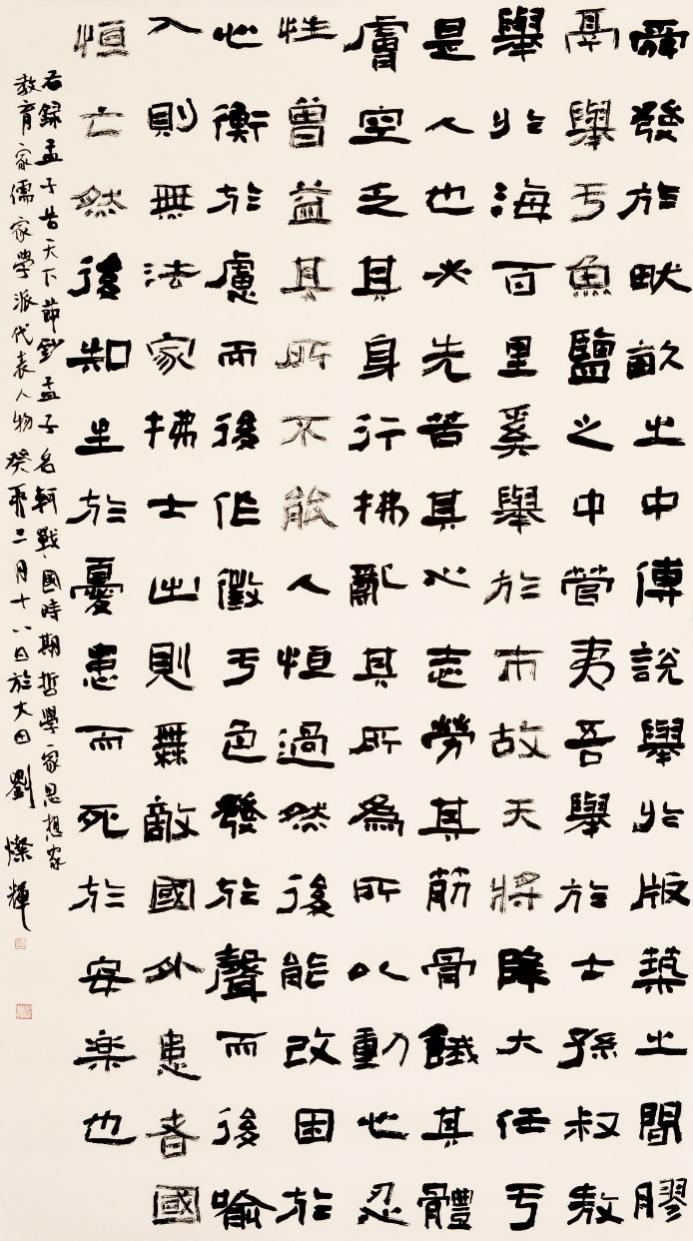 舜發於畎畝之中傅說舉於版築之間膠
鬲舉于魚鹽之中管夷吾舉於士孫叔敖
舉於海百里奚舉於市故天將降大任于
是人也必先苦其心志勞其筋骨餓其體
膚空乏其身行拂亂其所為所以動心忍
性曾益其所不能人恒過然後能改困於
心衡於慮而後作徵于色發於聲而後喻
入則無法家拂士出則無敵國外患者國
恒亡然後知生於憂患而死於安楽也
右錄孟子告天下節鈔孟子名軻戰國時期哲學家思想家
教育家儒家學派代表人物癸卯三月十八日於大田劉燦輝